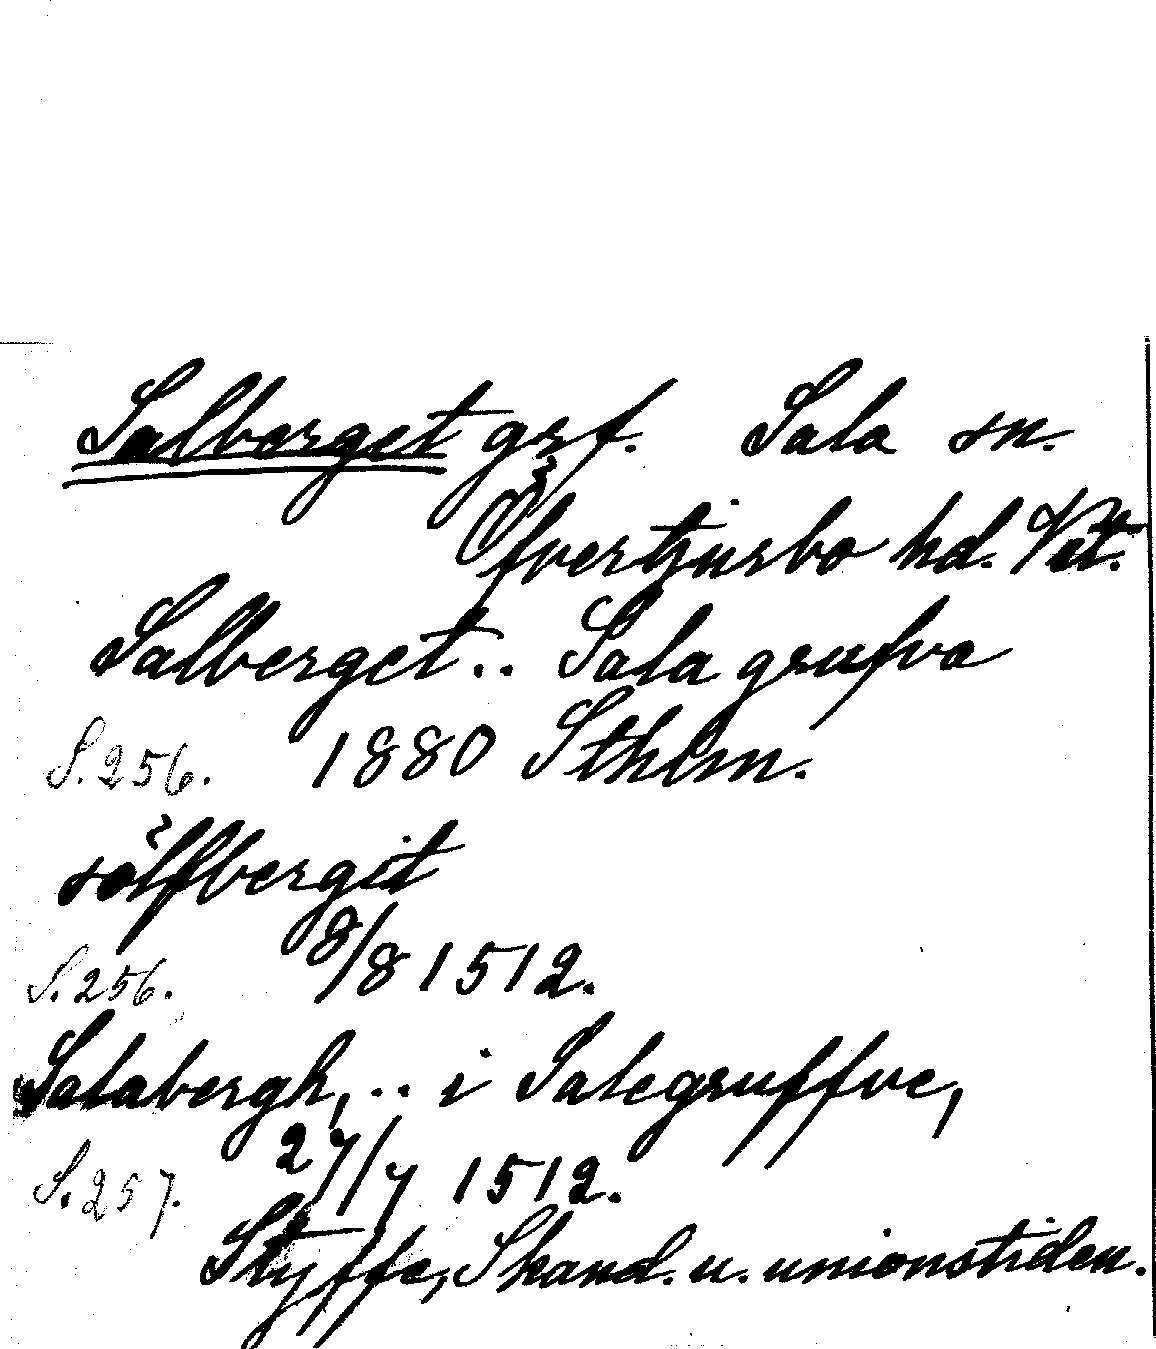 Salberget grf. Sala sn.
Öfvertjurbo hd. Vst.
Salberget.. Sala grufva
S. 256. 1880 Sthlm.
sölfbergit
S. 256. 8/8 1512.
Salabergh, .. i Salegruffve,
S. 257. 27/7 1512.
Styffe, Skand. u. unionstiden.